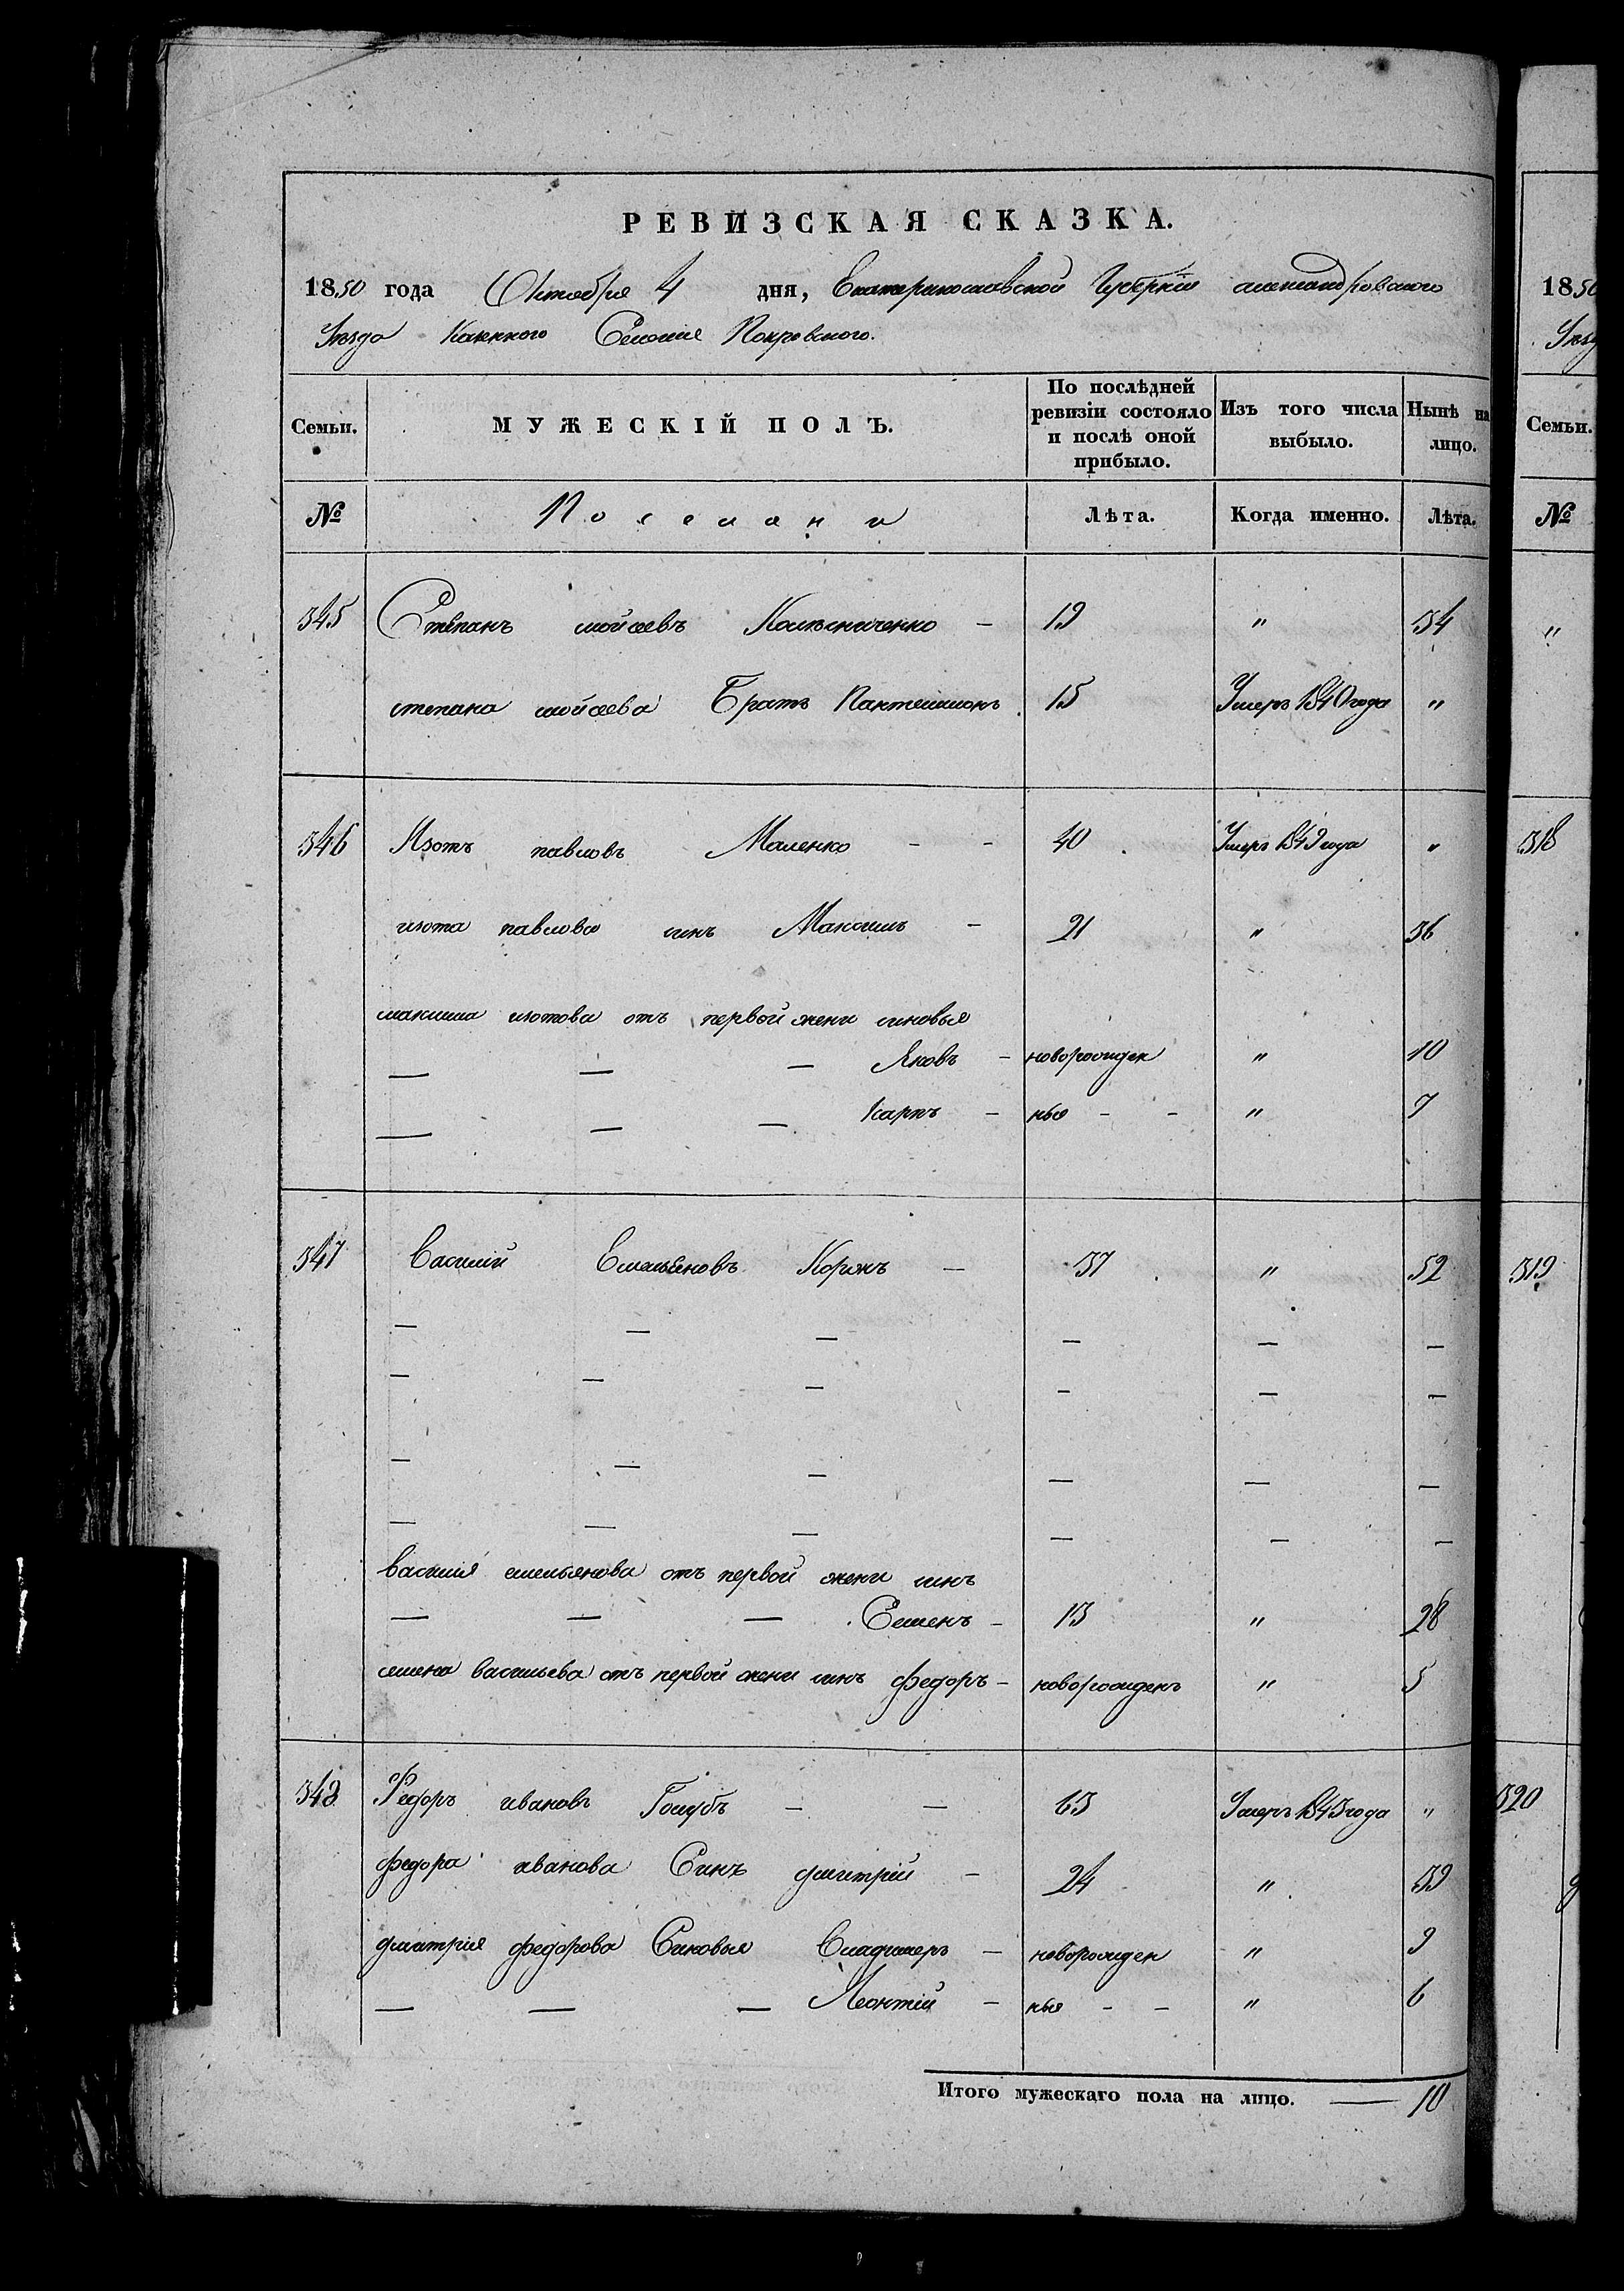 РЕВИЗСКАЯ СКАЗКА.
1850 года Октября 4 дня, Екатеринославской Губерніи александровскаго
Уезда Казенного Селенія Покровского.
Семьи. МУЖЕСКІЙ ПОЛЪ. По послѣдней ревизіи состояло и послѣ оной прибыло. Изъ того числа выбыло. Нынѣ на лицо.
№ Поселяни Лѣта. Когда именно. Лѣта.
345 Степанъ мойсеевъ Колѣсниченко — 19 " 34
степана мойсеева Братъ Пантелимонъ 15 Умеръ 1840 года "
346 Изотъ павловъ Маленко - - 40 Умеръ 1849 года "
изота павлова синъ Максимъ - 21 " 36
максима изотова отъ первой жени синовья
— — — Яковъ - новорожден " 10
— — — Карпъ - ныя - - " 7
347 Василій Емельяновъ Коронъ — 37 " 52
— — — — — —
— — — — — —
— — — — — —
— — — — — —
василія емельянова отъ первой жени синъ
— — — Семенъ - 13 " 28
семена васильева отъ первой жени синъ федоръ - новорожденъ " 5
348 Федоръ ивановъ Голубъ — — 63 Умеръ 1843 года "
федора иванова Синъ дмитрій - 24 " 39
дмитрія федорова Синовья Владимеръ - новорожден " 9
— — — Леонтій - ныя - - " 6
Итого мужескаго пола на лицо. — 10
1850
Уезд
Семьи.
№
"
318
319
320